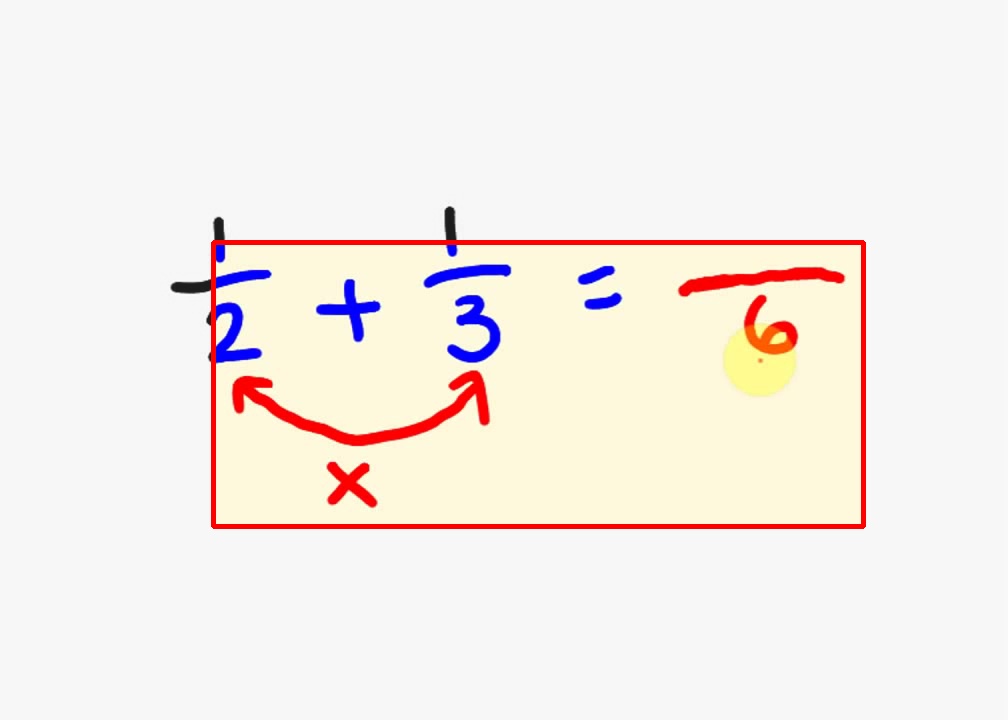 1/2 + 1/3 = /6
×